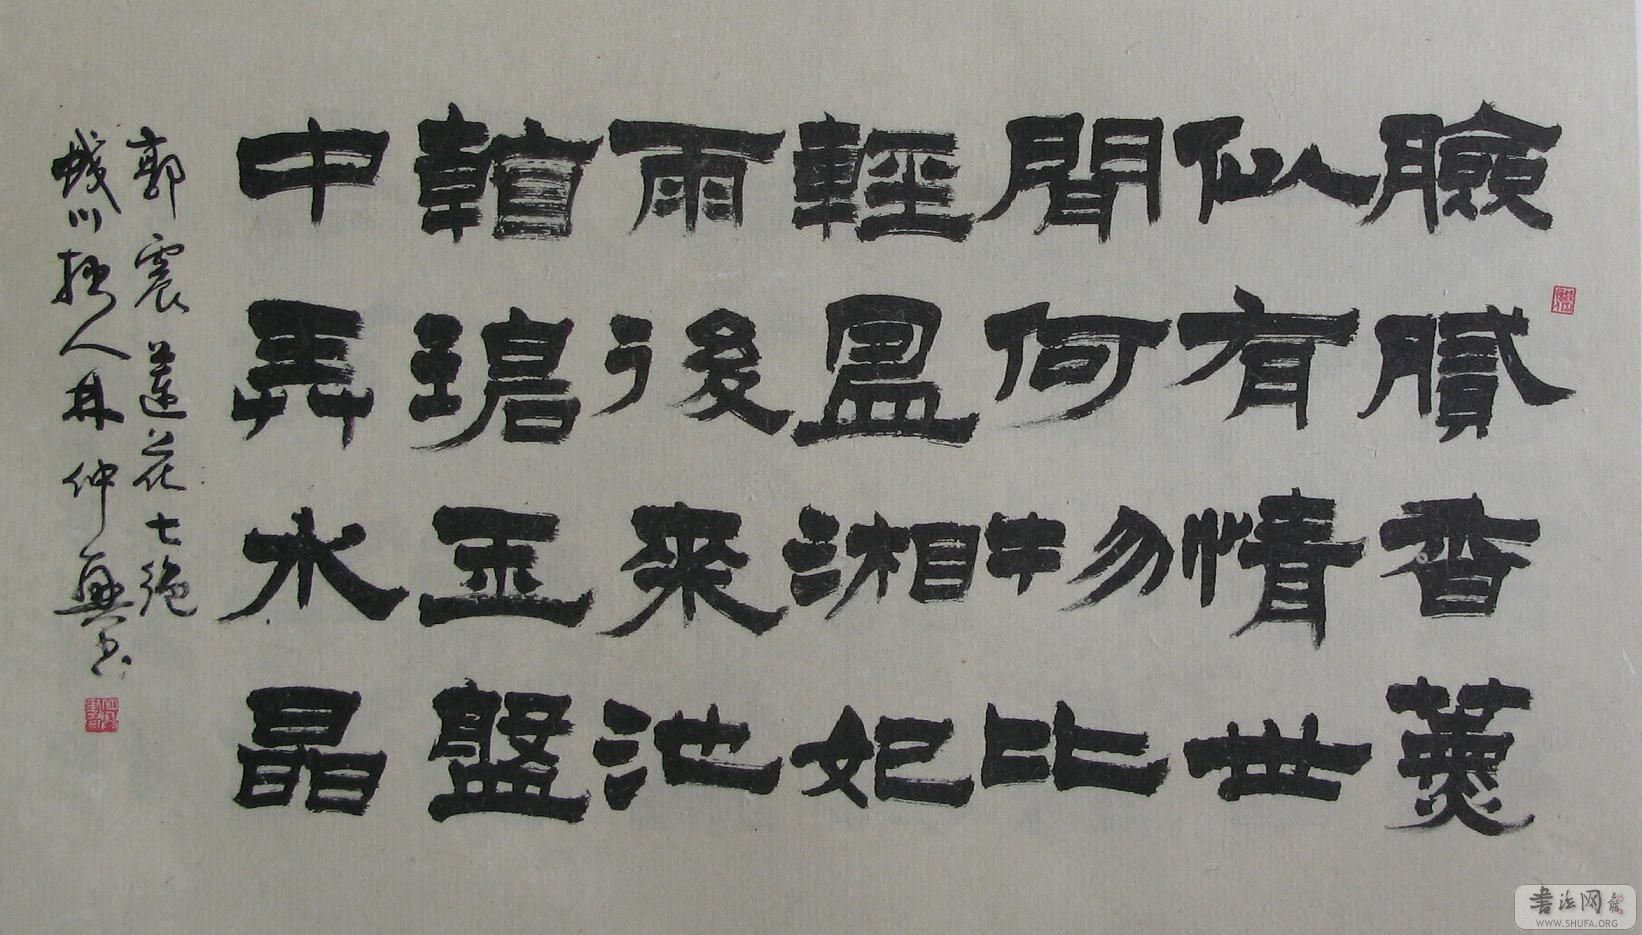 臉膩香薰
似有情世
間何物比
輕盈湘妃
雨後來池
看碧玉盤
中弄水晶
郭震蓮花七絕
川拙人林仲興书
书法网
WWW.SHUFA.ORG